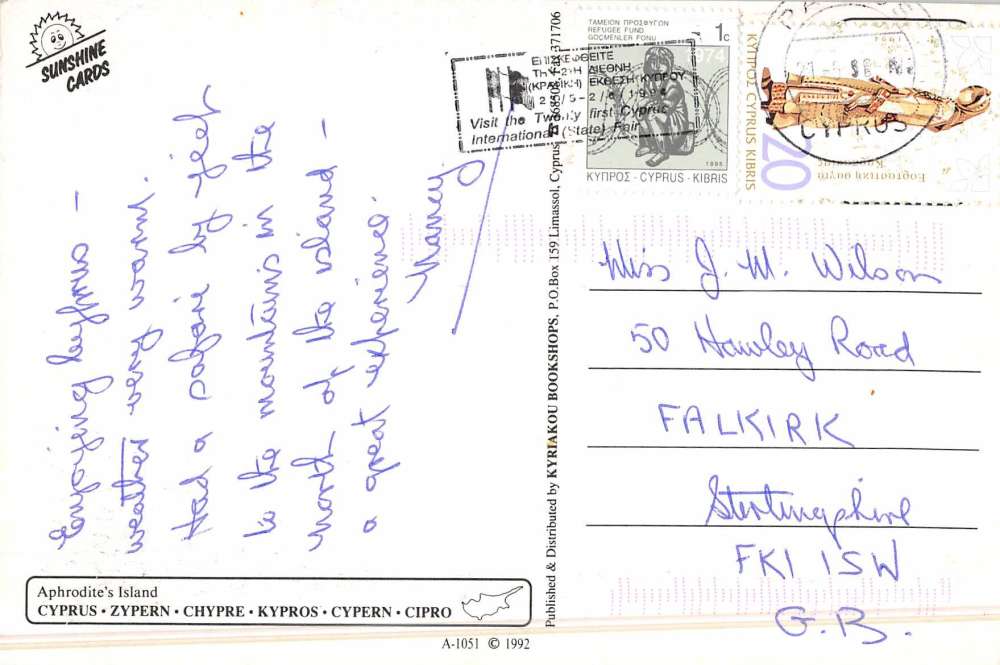 SUNSHINE
CARDS
Enjoying Cyprus –
weather very warm.
Had a safari by jeep
to the mountains in the
north of the island –
a great experience.
Nancy
Aphrodite's Island
CYPRUS · ZYPERN · CHYPRE · KYPROS · CYPERN · CIPRO
A-1051 © 1992
Published & Distributed by KYRIAKOU BOOKSHOPS, P.O.Box 159 Limassol, Cyprus ☎ 68508 FAX 371706
ΕΠΙΣΚΕΦΘΕΙΤΕ
ΤΗΝ 21Η ΔΙΕΘΝΗ
(ΚΡΑΤΙΚΗ) ΕΚΘΕΣΗ ΚΥΠΡΟΥ
Visit the Twenty first Cyprus
International (State) Fair
ΤΑΜΕΙΟΝ ΠΡΟΣΦΥΓΩΝ
REFUGEE FUND
GÖÇMENLER FONU
1c
1974
1995
ΚΥΠΡΟΣ - CYPRUS - KIBRIS
ΚΥΠΡΟΣ CYPRUS KIBRIS
20
CYPRUS
Miss J. M. Wilson
50 Hawley Road
FALKIRK
Stirlingshire
FK1 1SW
G.B.